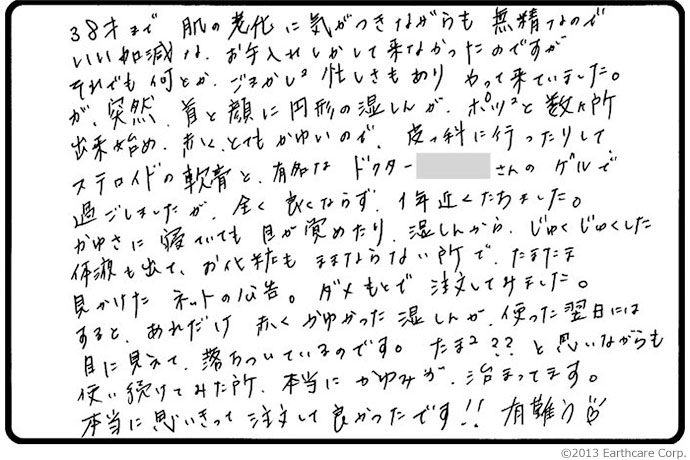 38才まで 肌の老化に気がつきながらも 無精なので
いい加減な、お手入れしかして来なかったのですが
それでも何とか、ごまかし² 忙しさもあり やって来ていました。
が、突然、首と顔に円形の湿しんが、ポツ²と数ヶ所
出来始め、赤く、とてもかゆいので、皮フ科に行ったりして
ステロイドの軟膏と、有名な ドクター さんの ゲルで
過ごしましたが、全く良くならず、1年近くたちました。
かゆさに 寝ていても 目が覚めたり、湿しんから、じゅくじゅくした
体液も出て、お化粧も ままならない所で、たまたま
見かけた ネットの広告。ダメもとで 注文してみました。
すると、あれだけ 赤く かゆかった湿しんが、使った翌日には
目に見えて、落ちついているのです。たま²?? と思いながらも
使い続けてみた所、本当に かゆみが、治まってます。
本当に思いきって 注文して良かったです!! 有難う♡
©2013 Earthcare Corp.